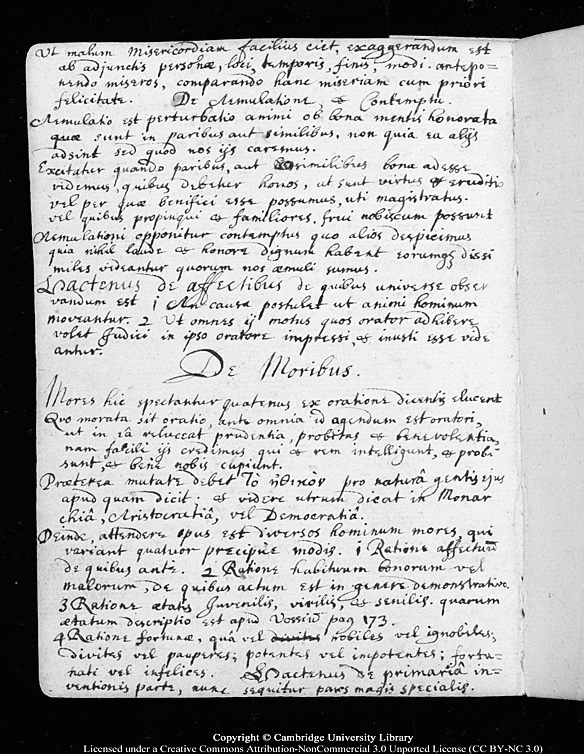 Ut malum Misericordiam facilius ciet, exaggerandum est
ab adjunctis personæ, loci, temporis, finis, modi. antepo-
nendo miseros, comparando hanc miseriam cum priori
felicitate. De Aemulatione, & Contemptu.
Aemulatio est perturbatio animi ob bona mentis honorata
quæ sunt in paribus aut similibus, non quia ea alijs
adsint sed quod nos ijs caremus.
Excitatur quando paribus, aut similibus bona adesse
videmus, quibus debetur honos, ut sunt virtus & eruditio
vel per quæ benifici esse possumus, uti magistratus.
vel quibus propinqui & familiores, frui nobiscum possunt
Aemulationi opponitur contemptus quo alios despicimus
quia nihil laude & honore dignum habent eorumq dissi
miles videantur quorum nos æmuli sumus.
Hactenus de affectibus de quibus universe obser
vandum est 1 An causa postulet ut animi hominum
moveantur. 2 Ut omnes ij motus quos orator adhibere
volet Judici in ipso oratore impressi, & inusti esse vide
antur.
De Moribus.
Mores hic spectantur quatenus ex oratione dicentis elucent
Quo morata sit oratio, ante omnia id agendum est oratori,
ut in eâ reluceat prudentia, probitas & benevolentia,
nam facili ijs credimus qui & rem intelligunt, & probi
sunt, & bene nobis cupiunt.
Præterea mutare debet Τὸ ἠθικὸν pro naturâ gentis ejus
apud quam dicit; & videre utrum dicat in Monar
chiâ, Aristocratiâ, vel Democratiâ.
Deinde, attendere opus est diversos hominum mores, qui
variant quatuor præcipue modis. 1 Ratione affectuum
de quibus ante. 2 Ratione habituum bonorum vel
malorum, de quibus actum est in genere demonstrativo.
3 Ratione ætatis Juvenilis, virilis, & senilis. quarum
ætatum descriptio est apud Vossium pag 173.
4 Ratione fortunæ, quâ vel divites nobiles vel ignobiles;
divites vel pauperes; potentes vel impotentes; fortu-
nati vel infelices. Hactenus de primariâ in-
ventionis parte, nunc sequitur pars magis specialis.
Copyright © Cambridge University Library
Licensed under a Creative Commons Attribution-NonCommercial 3.0 Unported License (CC BY-NC 3.0)